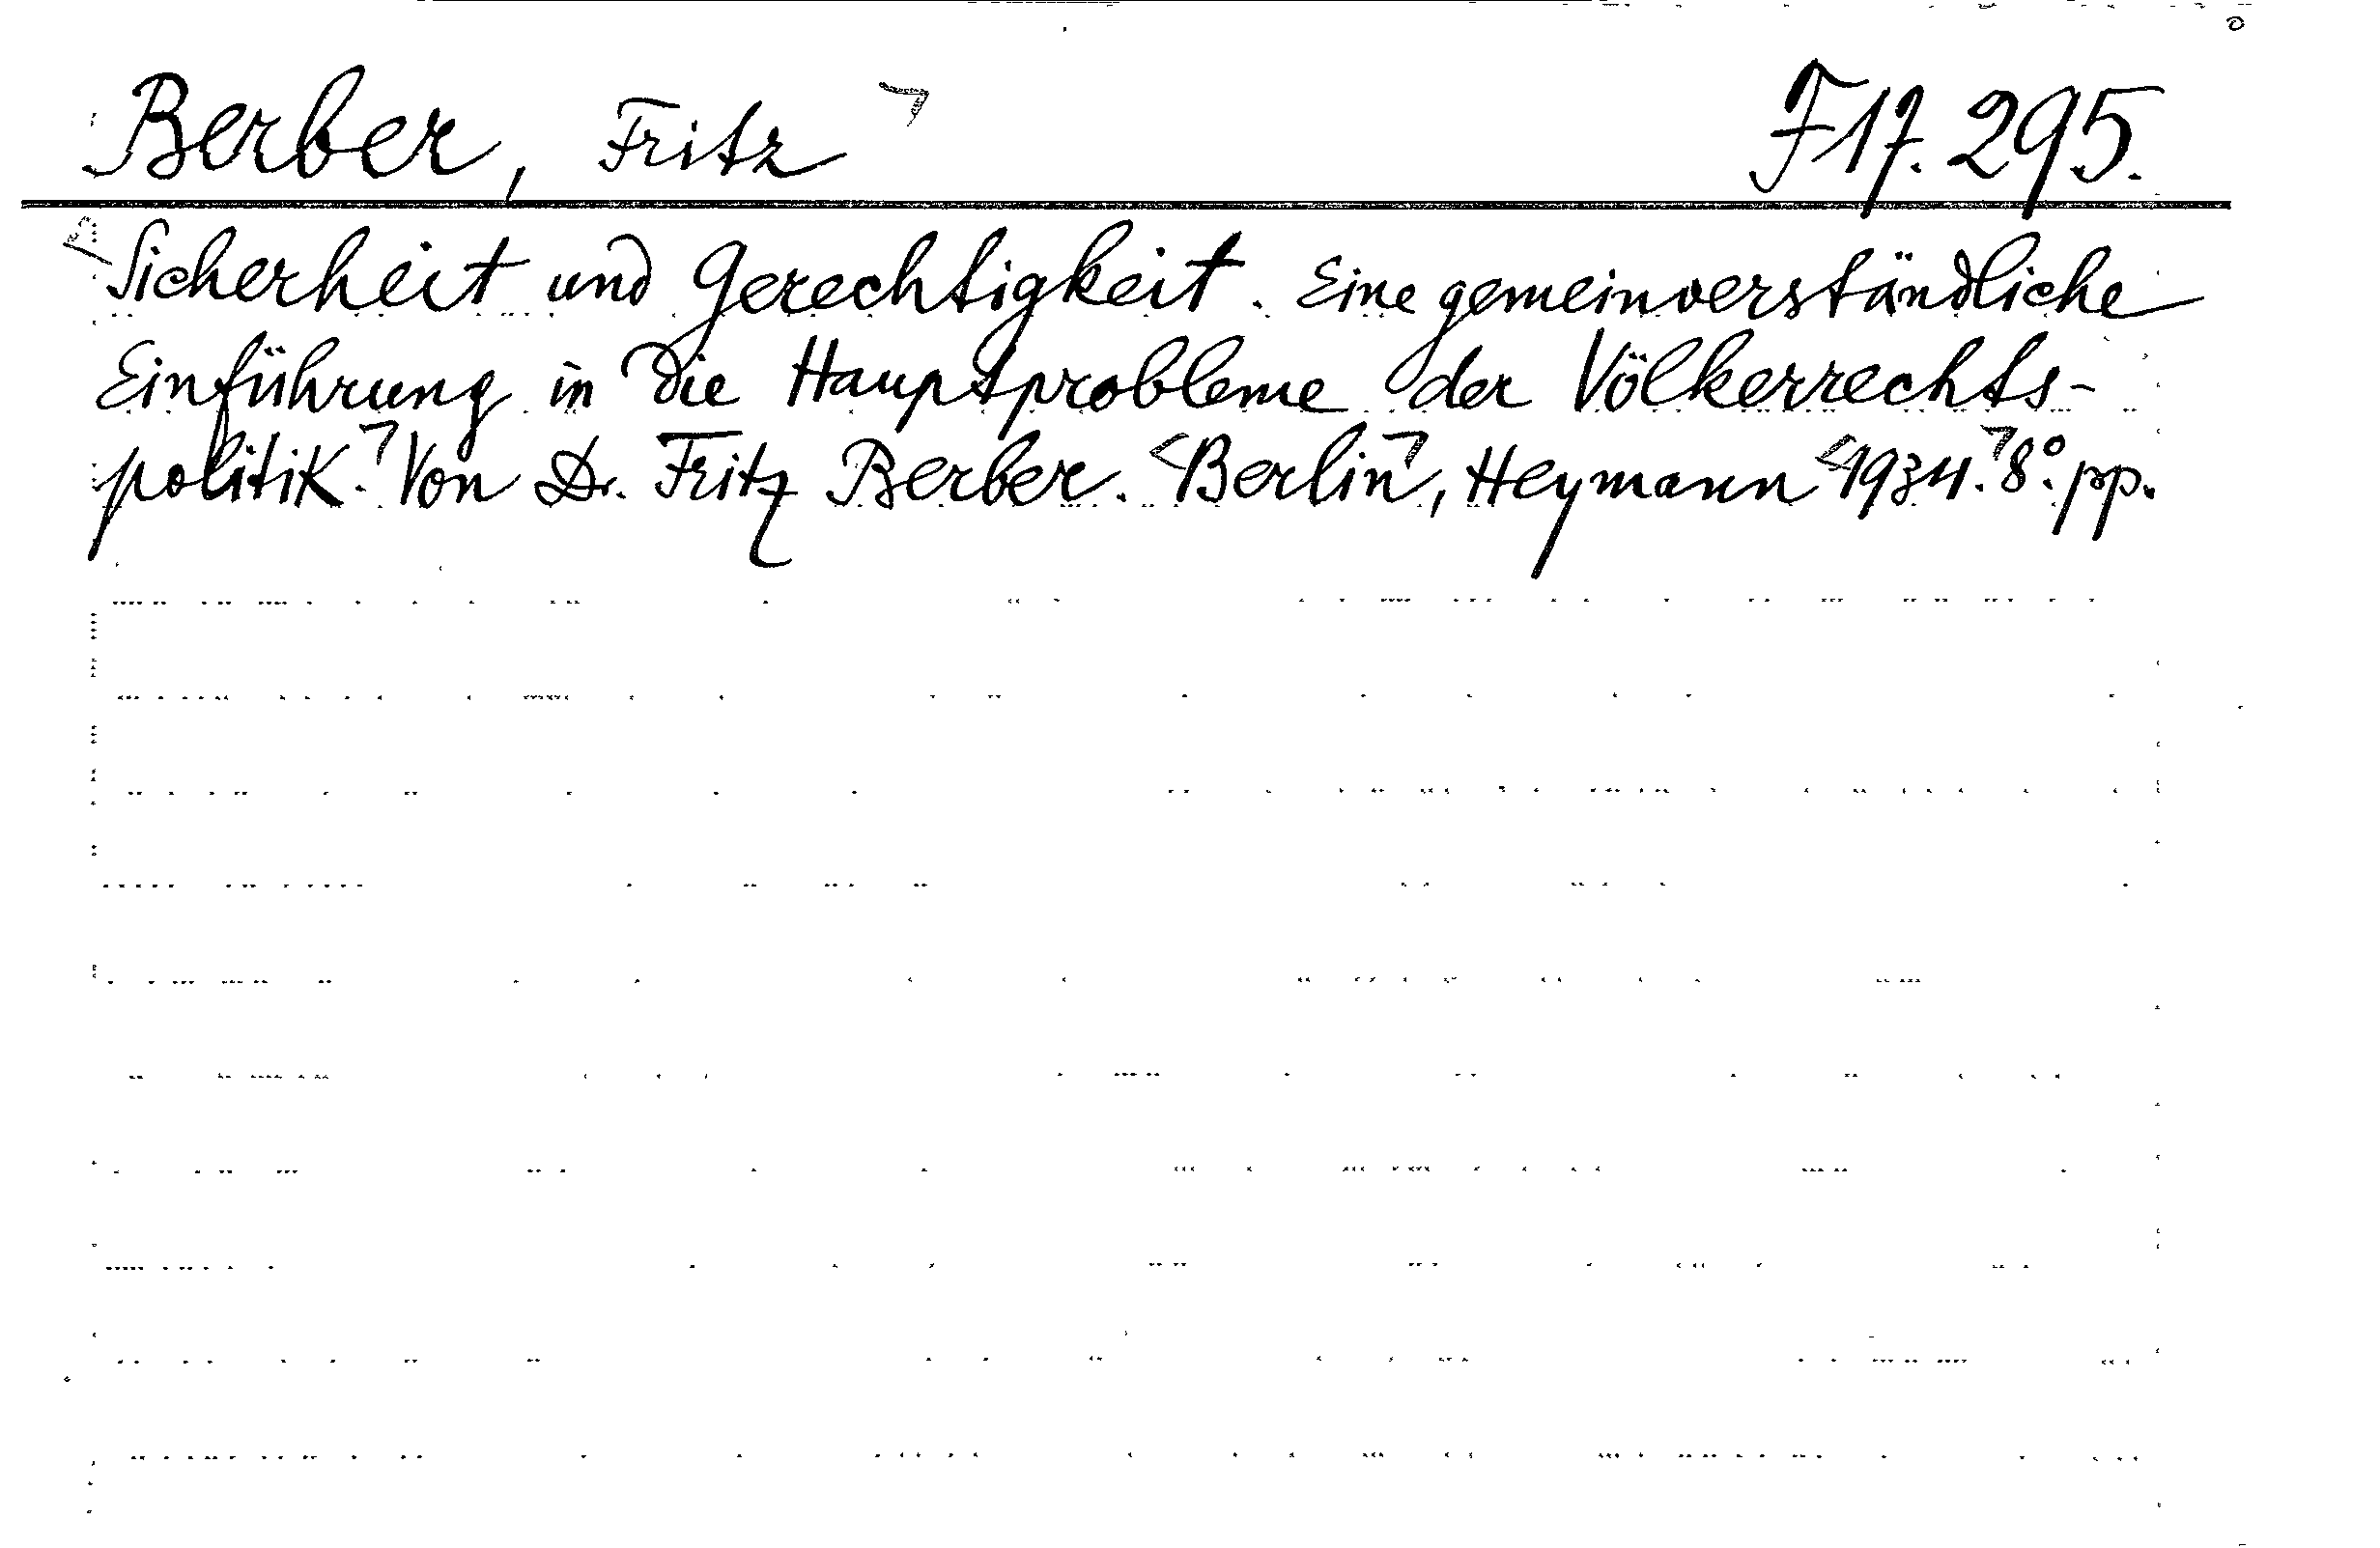 Berber, Fritz F17.295.
Sicherheit und Gerechtigkeit. Eine gemeinverständliche
Einführung in die Hauptprobleme der Völkerrechts-
politik. Von Dr. Fritz Berber. Berlin, Heymann 1934. 8°. pp.